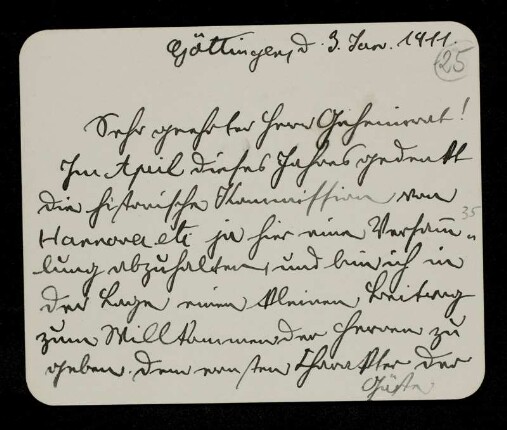 Göttingen, d. 3. Jan. 1911.
25
Sehr geehrter Herr Geheimrat!
Im April dieses Jahres gedenkt
die historische Kommission von
35
Hannover etc ja hier eine Versamm„
lung abzuhalten, und bin ich in
der Lage einen kleinen Beitrag
zum Willkommen der Herren zu
geben. Dem ernsten Charakter der
Gäste